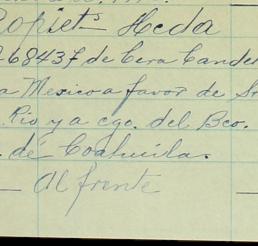 Copiets Heda
26843 f de Cera Cande
a Mexico a favor de Sr
Rio y a cgo. del Bco.
de Coahuila.
Al frente